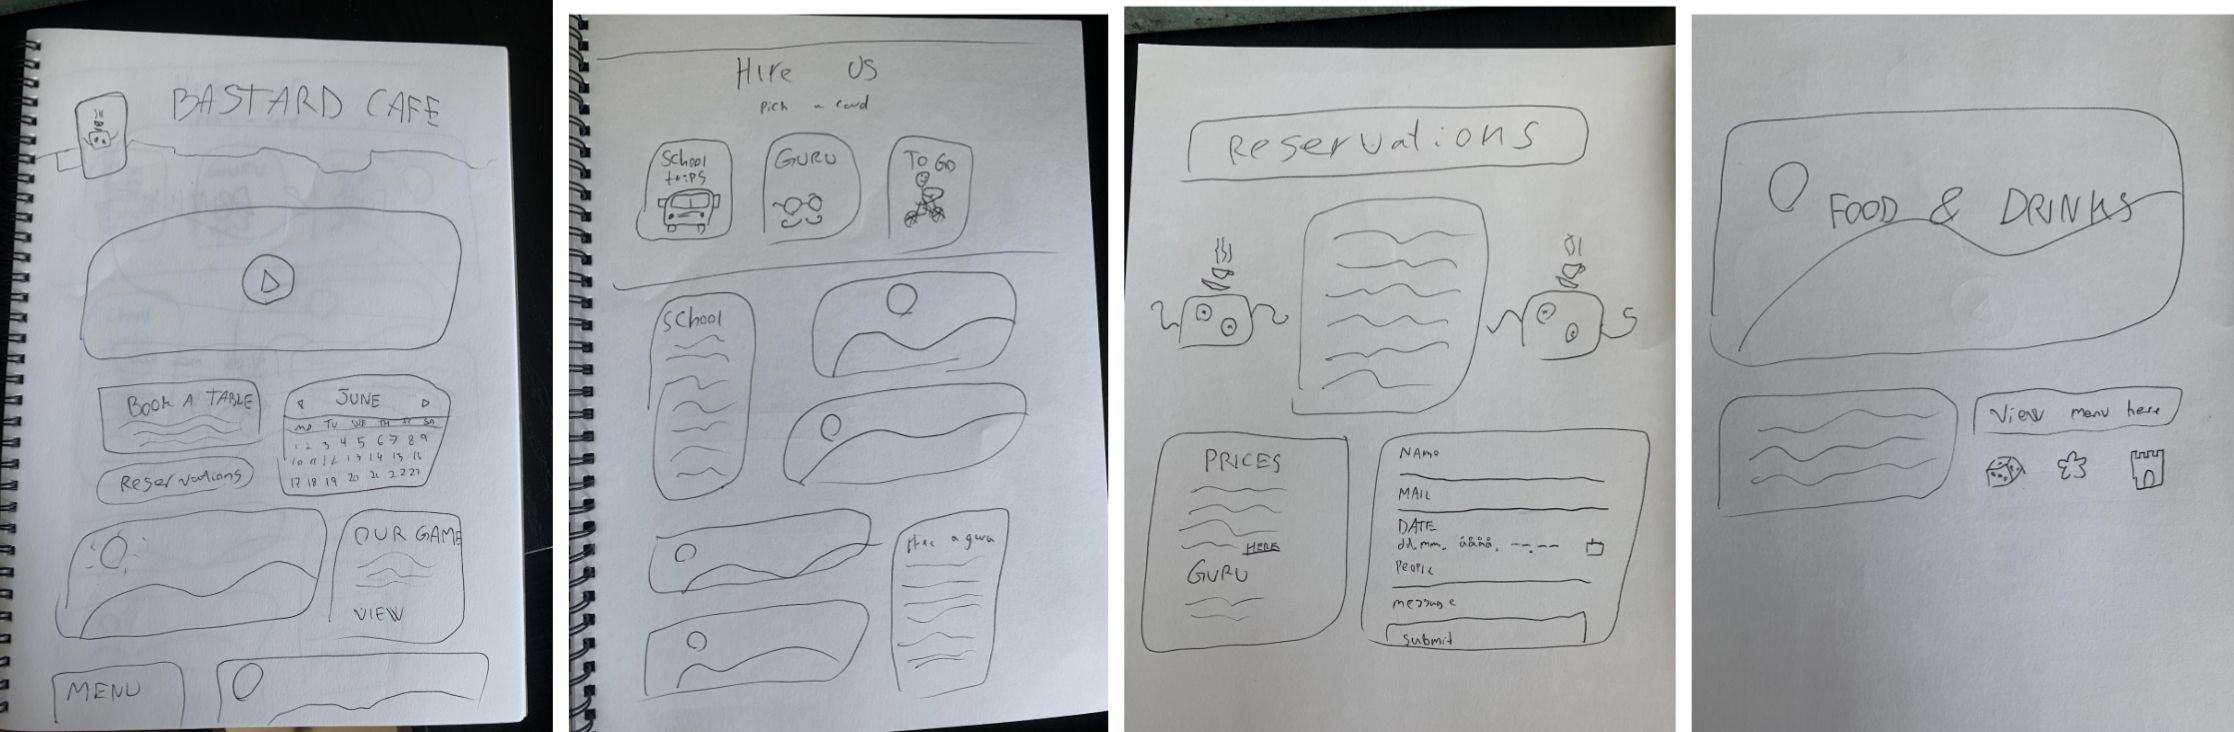 BASTARD CAFE
BOOK A TABLE
Reservations
JUNE
MO TU WE TH FR SA
1 2 3 4 5 6 7 8 9
10 11 12 13 14 15 16
17 18 19 20 21 22 23
OUR GAME
VIEW
MENU
Hire US
Pick a card
School
trips
GURU
TO GO
School
Hire a guru
Reservations
PRICES
HERE
GURU
NAme
MAIL
DATE
dd.mm. åååå. --.--
People
message
Submit
FOOD & DRINKS
View menu here